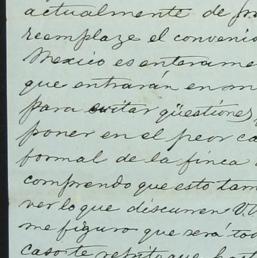 actualmente de
reemplaze el convenio
Mexico es enterame
que entrarán en
para evitar qüestiones,
poner en el peor ca
formal de la finca
comprendo que esto tam
ver lo que discurren V.V.
me figuro que será tod
caso te repito que